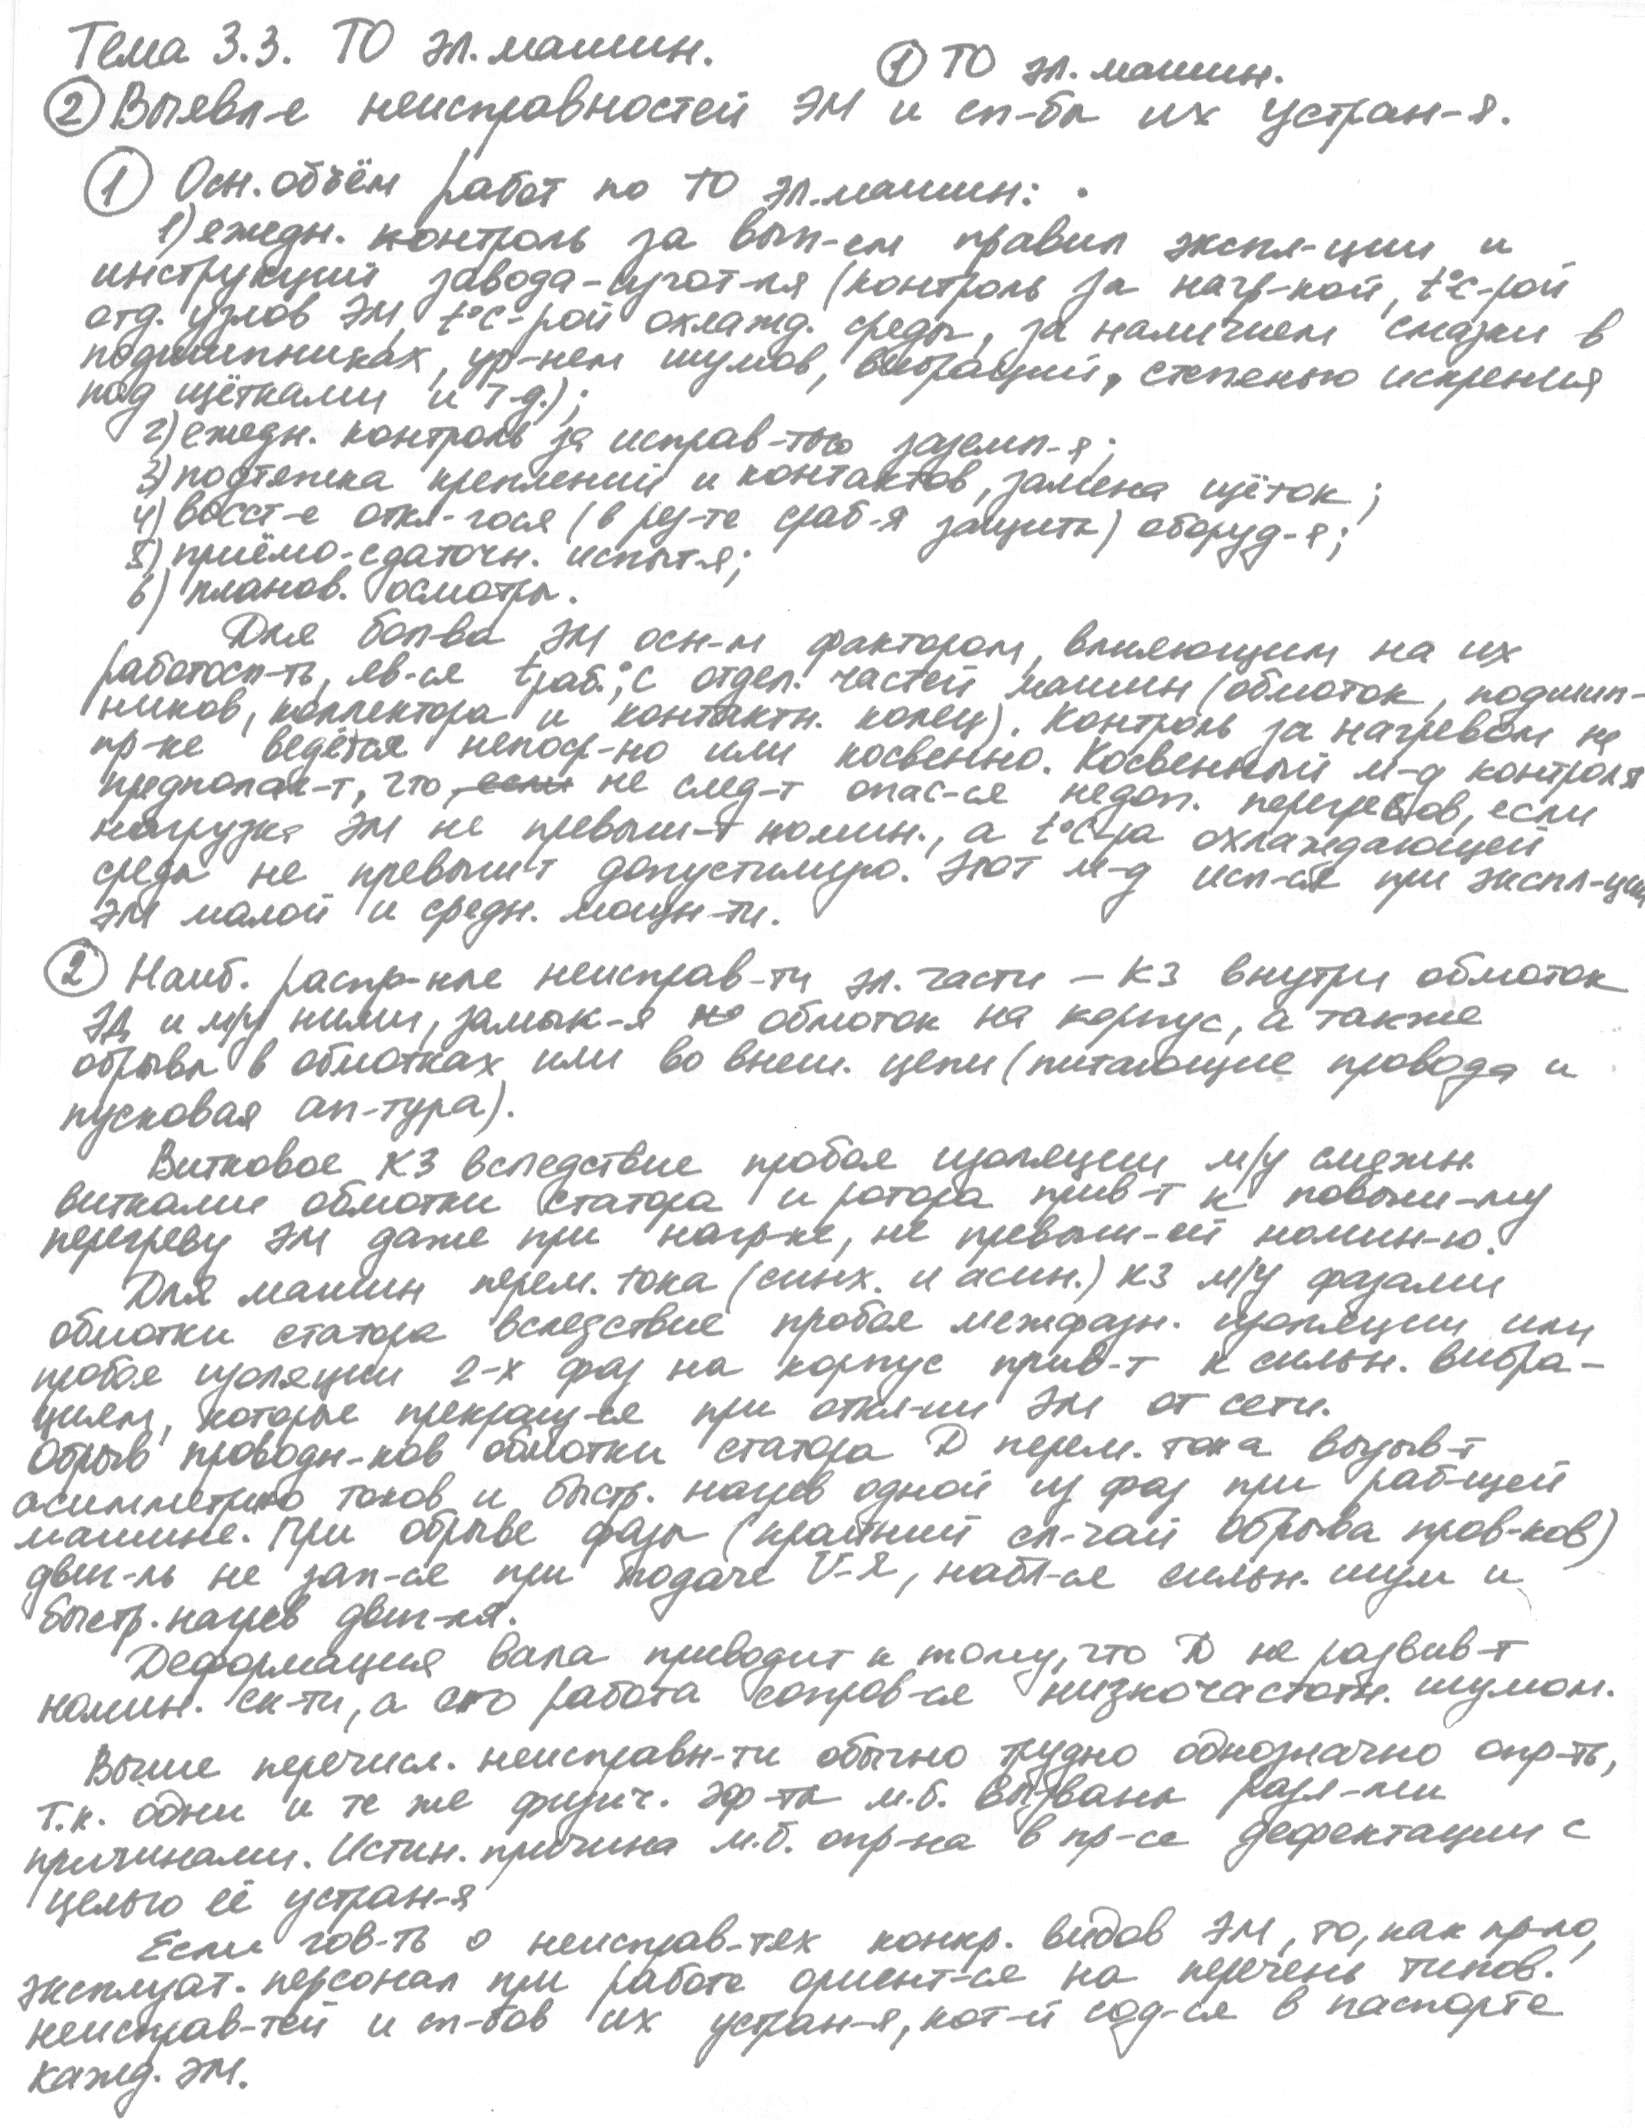 Тема 3.3. ТО эл. машин.
① ТО эл. машин.
② Выявл-е неисправностей ЭМ и сп-бы их устран-я.
① Осн. объём работ по ТО эл. машин:
1) ежедн. контроль за вып-ем правил экспл-ции и
инструкций завода-изгот-ля (контроль за нагр-кой, t°C-рой
отд. узлов ЭМ, t°C-рой охлажд. среды, за наличием смазки в
подшипниках, ур-нем шумов, вибраций, степенью искрения
под щётками и т.д.);
2) ежедн. контроль за исправ-тью заземл-я;
3) подтяжка креплений и контактов, замена щёток;
4) восст-е откл-гося (в рез-те сраб-я защиты) оборуд-я;
5) приёмо-сдаточн. испыт-я;
6) планов. осмотры.
Для бол-ва ЭМ осн-м фактором, влияющим на их
работосп-ть, яв-ся tраб.,°C отдел. частей машин (обмоток, подшип-
ников, коллектора и контактн. колец). Контроль за нагревом на
пр-ке ведётся непоср-но или косвенно. Косвенный м-д контроля
предполаг-т, что не след-т опас-ся недоп. перегревов, если
нагрузка ЭМ не превыш-т номин., а t°C-ра охлаждающей
среды не превыш-т допустимую. Этот м-д исп-ся при экспл-ции
ЭМ малой и средн. мощн-ти.
② Наиб. распр-ные неисправ-ти эл. части – КЗ внутри обмоток
ЭД и м/у ними, замык-я обмоток на корпус, а также
обрывы в обмотках или во внеш. цепи (питающие провода и
пусковая ап-тура).
Витковое КЗ вследствие пробоя изоляции м/у смежн.
витками обмотки статора и ротора прив-т к повыш-му
перегреву ЭМ даже при нагр-ке, не превыш-ей номин-ю.
Для машин перем. тока (синх. и асин.) КЗ м/у фазами
обмотки статора вследствие пробоя межфазн. изоляции или
пробоя изоляции 2-х фаз на корпус прив-т к сильн. вибра-
циям, которые прекращ-ся при откл-ии ЭМ от сети.
Обрыв проводн-ков обмотки статора D перем. тока вызыв-т
асимметрию токов и быстр. нагрев одной из фаз при раб-щей
машине. При обрыве фазы (крайний сл-чай обрыва пров-ков)
двиг-ль не зап-ся при подаче U-я, набл-ся сильн. шум и
быстр. нагрев двиг-ля.
Деформация вала приводит к тому, что D не развив-т
номин. ск-ти, а его работа сопров-ся низкочастотн. шумом.
Выше перечисл. неисправн-ти обычно трудно однозначно опр-ть,
т.к. одни и те же физич. эф-ты м.б. вызваны разл-ми
причинами. Истин. причина м.б. опр-на в пр-се дефектации с
целью её устран-я
Если гов-ть о неисправ-тях конкр. видов ЭМ, то, как пр-ло,
эксплуат. персонал при работе ориент-ся на перечень типов.
неисправ-тей и сп-бов их устран-я, кот-й сод-ся в паспорте
кажд. ЭМ.